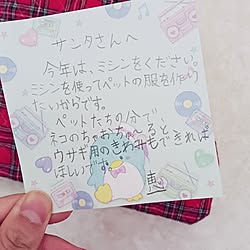 サンタさんへ
今年は、ミシンをください。
ミシンを使ってペットの服を作り
たいからです。
ペットたちの分で、
ネコのちゃおちゅ〜ると
ウサギ用のきわみもできれば
ほしいです。
恵